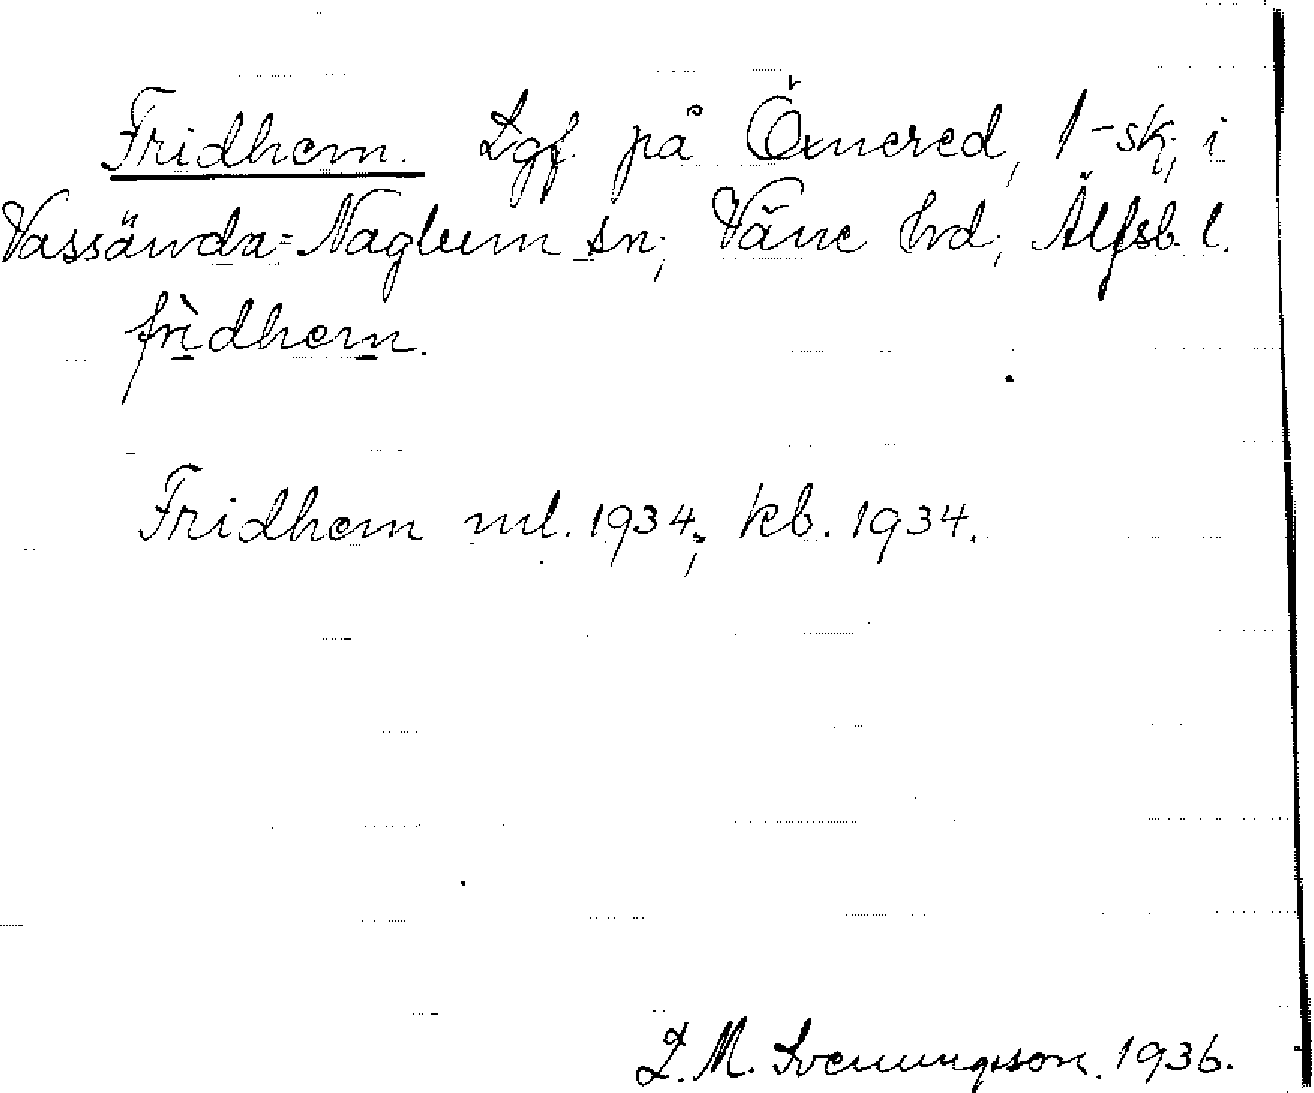 Fridhem. Lgf. på Öxnered, 1-sk; i
Vassända-Naglum sn; Väne hd; Älfsb. l.
frìdhem.
Fridhem ml. 1934; kb. 1934.
L. M. Svenungsson. 1936.